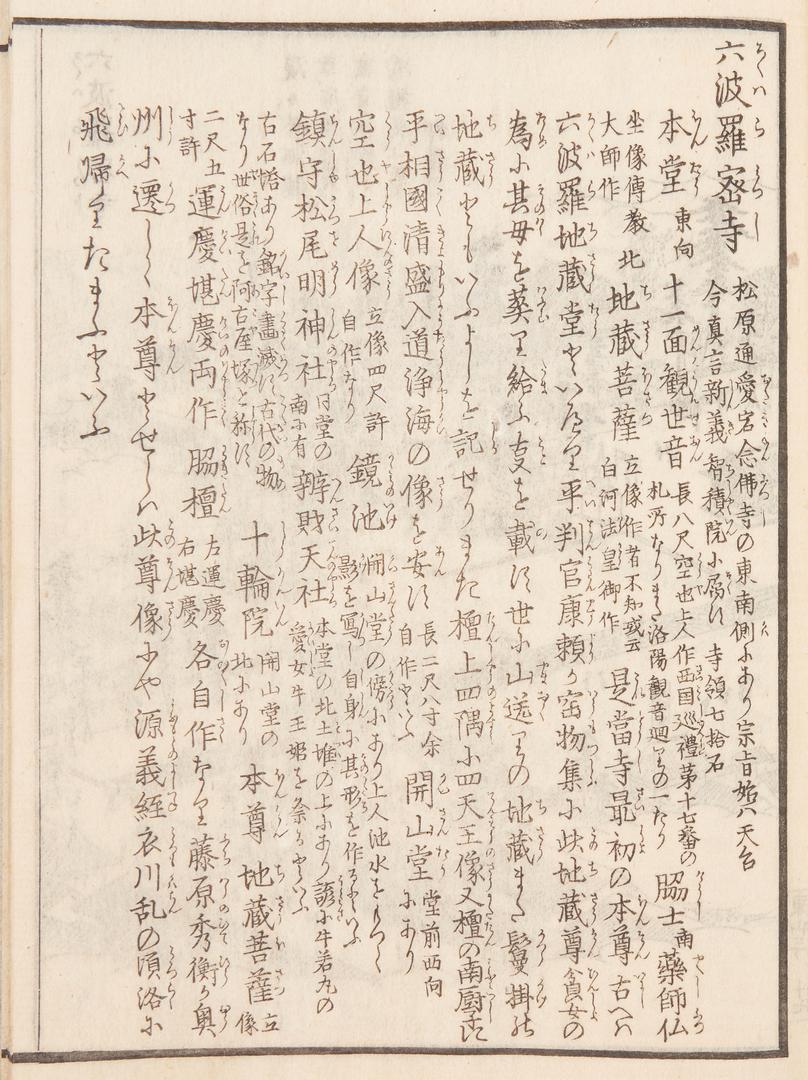 六波羅密寺
松原通愛宕念佛寺の東南側にあり宗旨始ハ天台
今真言新義智積院に属に 寺領七拾石
本堂 東向 十一面観世音 長八尺空也上人作西国巡禮第十七番の
札所なりまた洛陽観音廻りの一たり 脇士 南 藥師仏
坐像傳教
大師作 北 地蔵菩薩 立像作者不知或云
白河法皇御作 是當寺最初の本尊古へハ
六波羅地蔵堂といへり平判官康頼が宝物集に此地蔵尊貧女の
為に其母を葬り給ふ事を載に世に山送りの地蔵また鬘掛の
地蔵ともいふよしを記せりまた檀上四隅に四天王像又檀の南厨子に
平相國清盛入道浄海の像を安に 長二尺八寸余
自作といふ 開山堂 堂前西向
にあり
空也上人像 立像四尺許
自作なり 鏡池 開山堂の傍にあり上人池水をもつて
影を寫し自身に其形を作るといふ
鎮守松尾明神社 本堂の
南に有 辨財天社 本堂の北土堆の上にあり諺に牛若丸の
愛女牛王姫を祭るといふ
古石塔あり銘字畫滅に古代の物
なり世俗是を阿古屋塚と称に 十輪院 開山堂の
北にあり 本尊 地蔵菩薩 立
像
二尺五
寸許 運慶堪慶両作 脇檀 左運慶
右堪慶 各自作なり藤原秀衡が奥
州に遷して本尊とせしハ此尊像にや源義経衣川乱の頃洛に
飛帰りたまふといふ